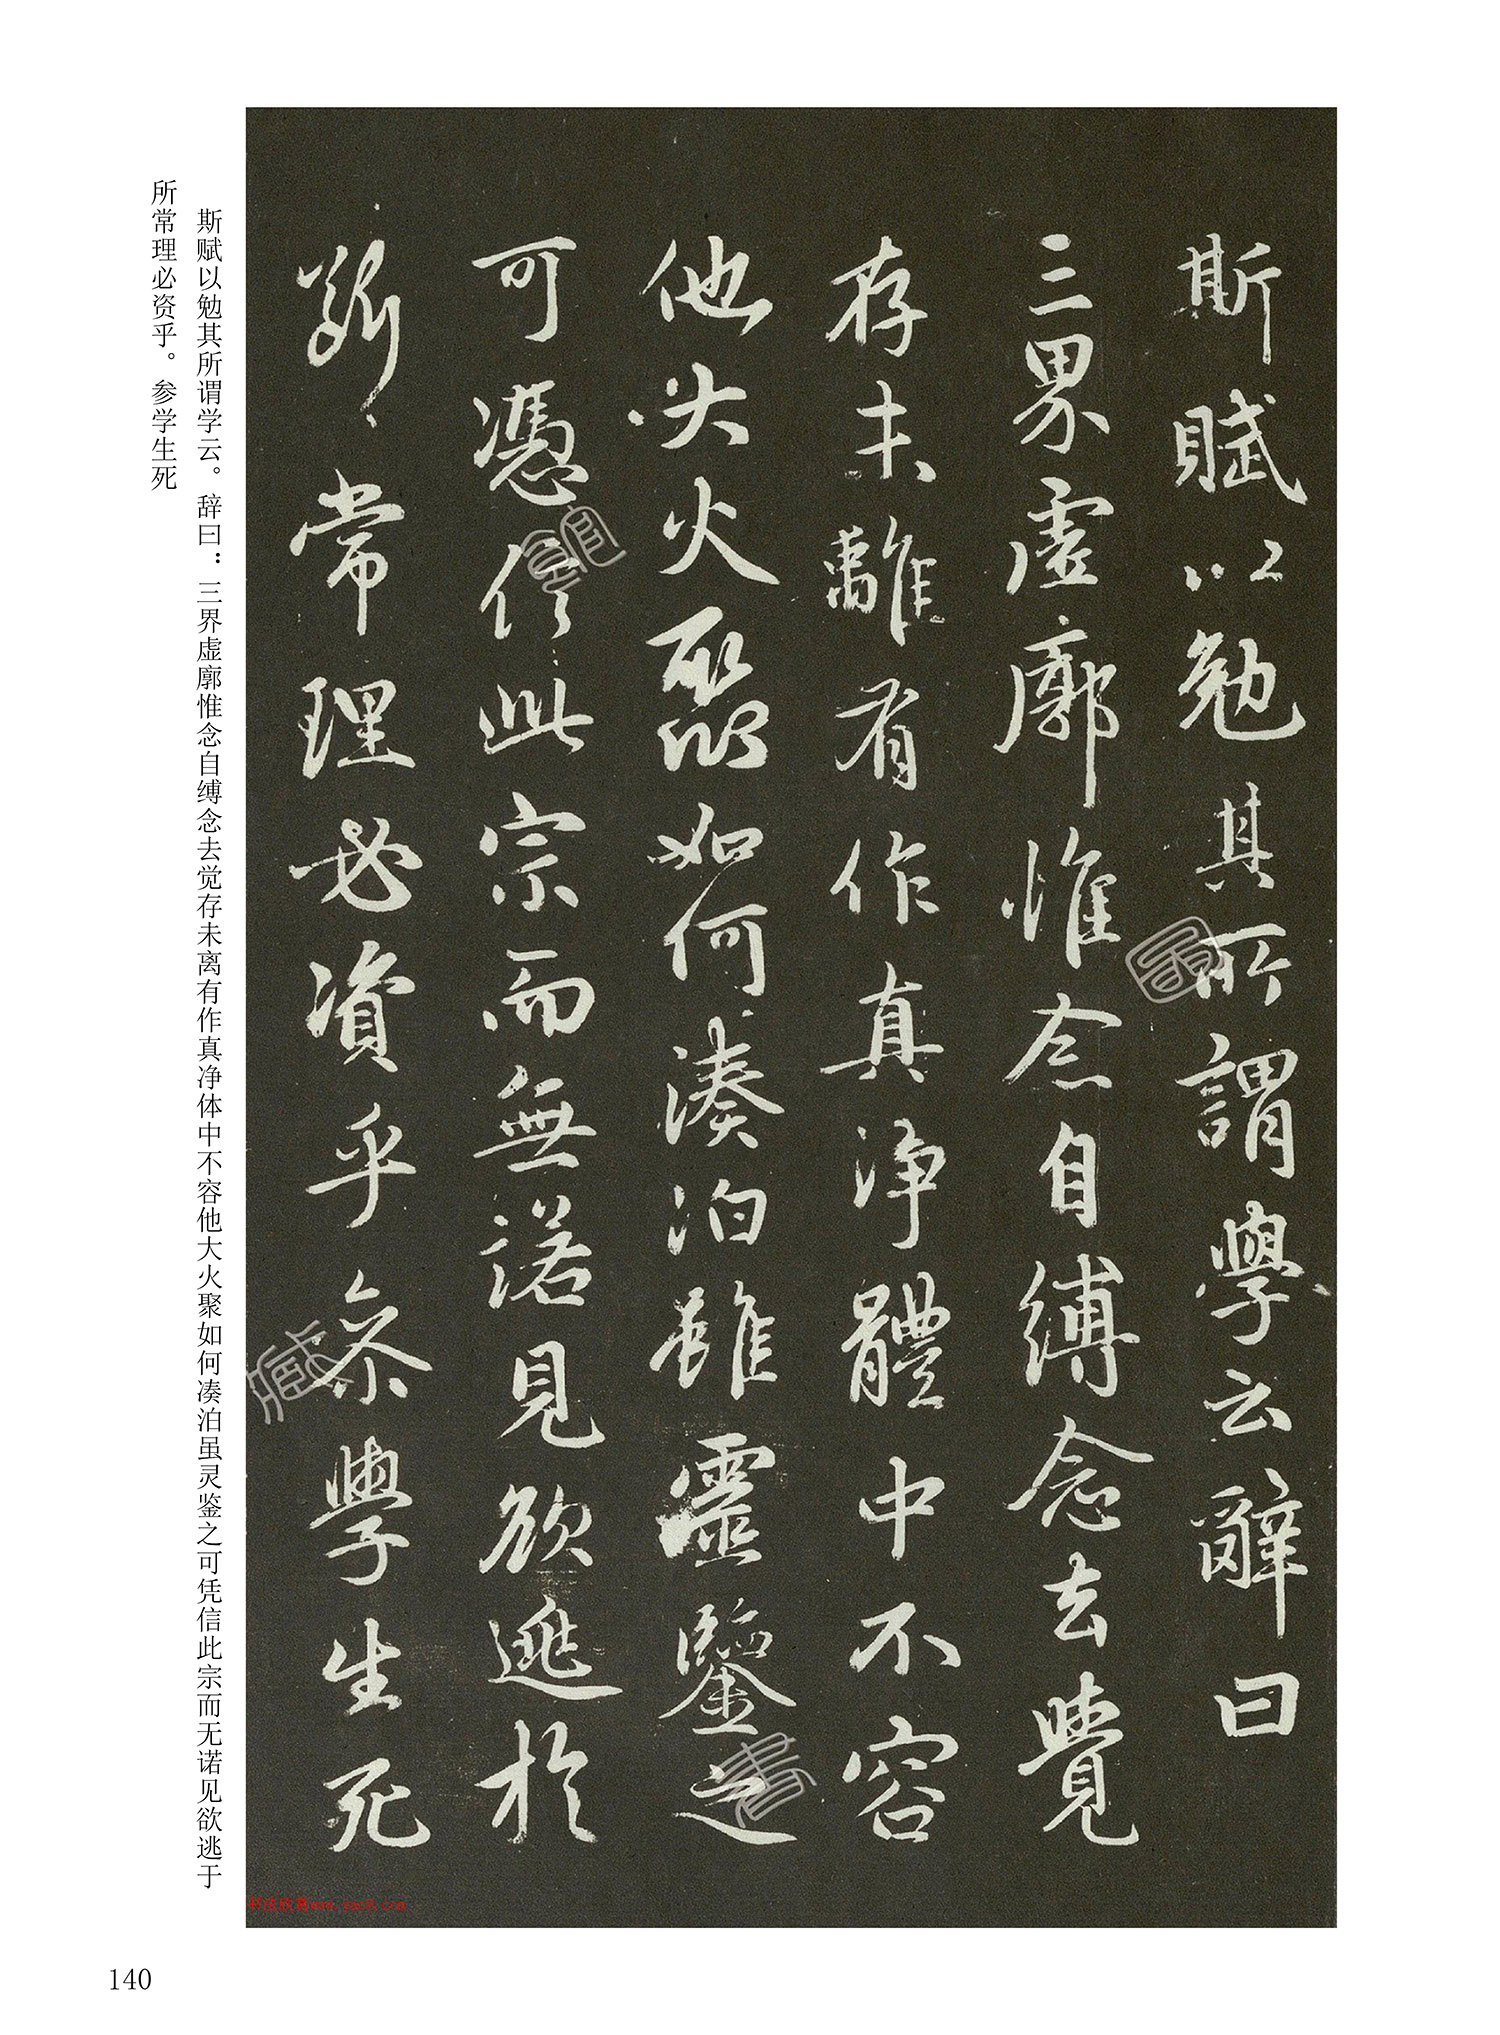 斯賦以勉其所謂學云辭曰
三界虛廓惟念自縛念去覺
存未離有作真淨體中不容
他大火聚如何湊泊雖靈鑒之
可憑信此宗而無諾見欲逃於
所常理必資乎參學生死
斯赋以勉其所谓学云。辞曰：三界虚廓惟念自缚念去觉存未离有作真净体中不容他大火聚如何凑泊虽灵鉴之可凭信此宗而无诺见欲逃于
所常理必资乎。参学生死
书法欣赏www.yac8.com
140